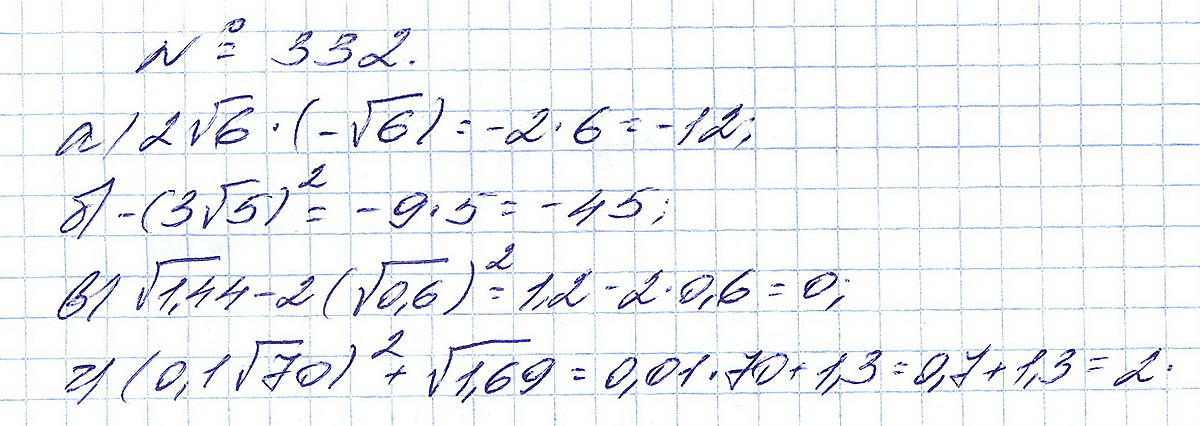 № 332.
а) 2√6 · (-√6) = -2 · 6 = -12;
б) -(3√5)² = -9 · 5 = -45;
в) √1,44 - 2(√0,6)² = 1,2 - 2 · 0,6 = 0;
г) (0,1√70)² + √1,69 = 0,01 · 70 + 1,3 = 0,7 + 1,3 = 2.